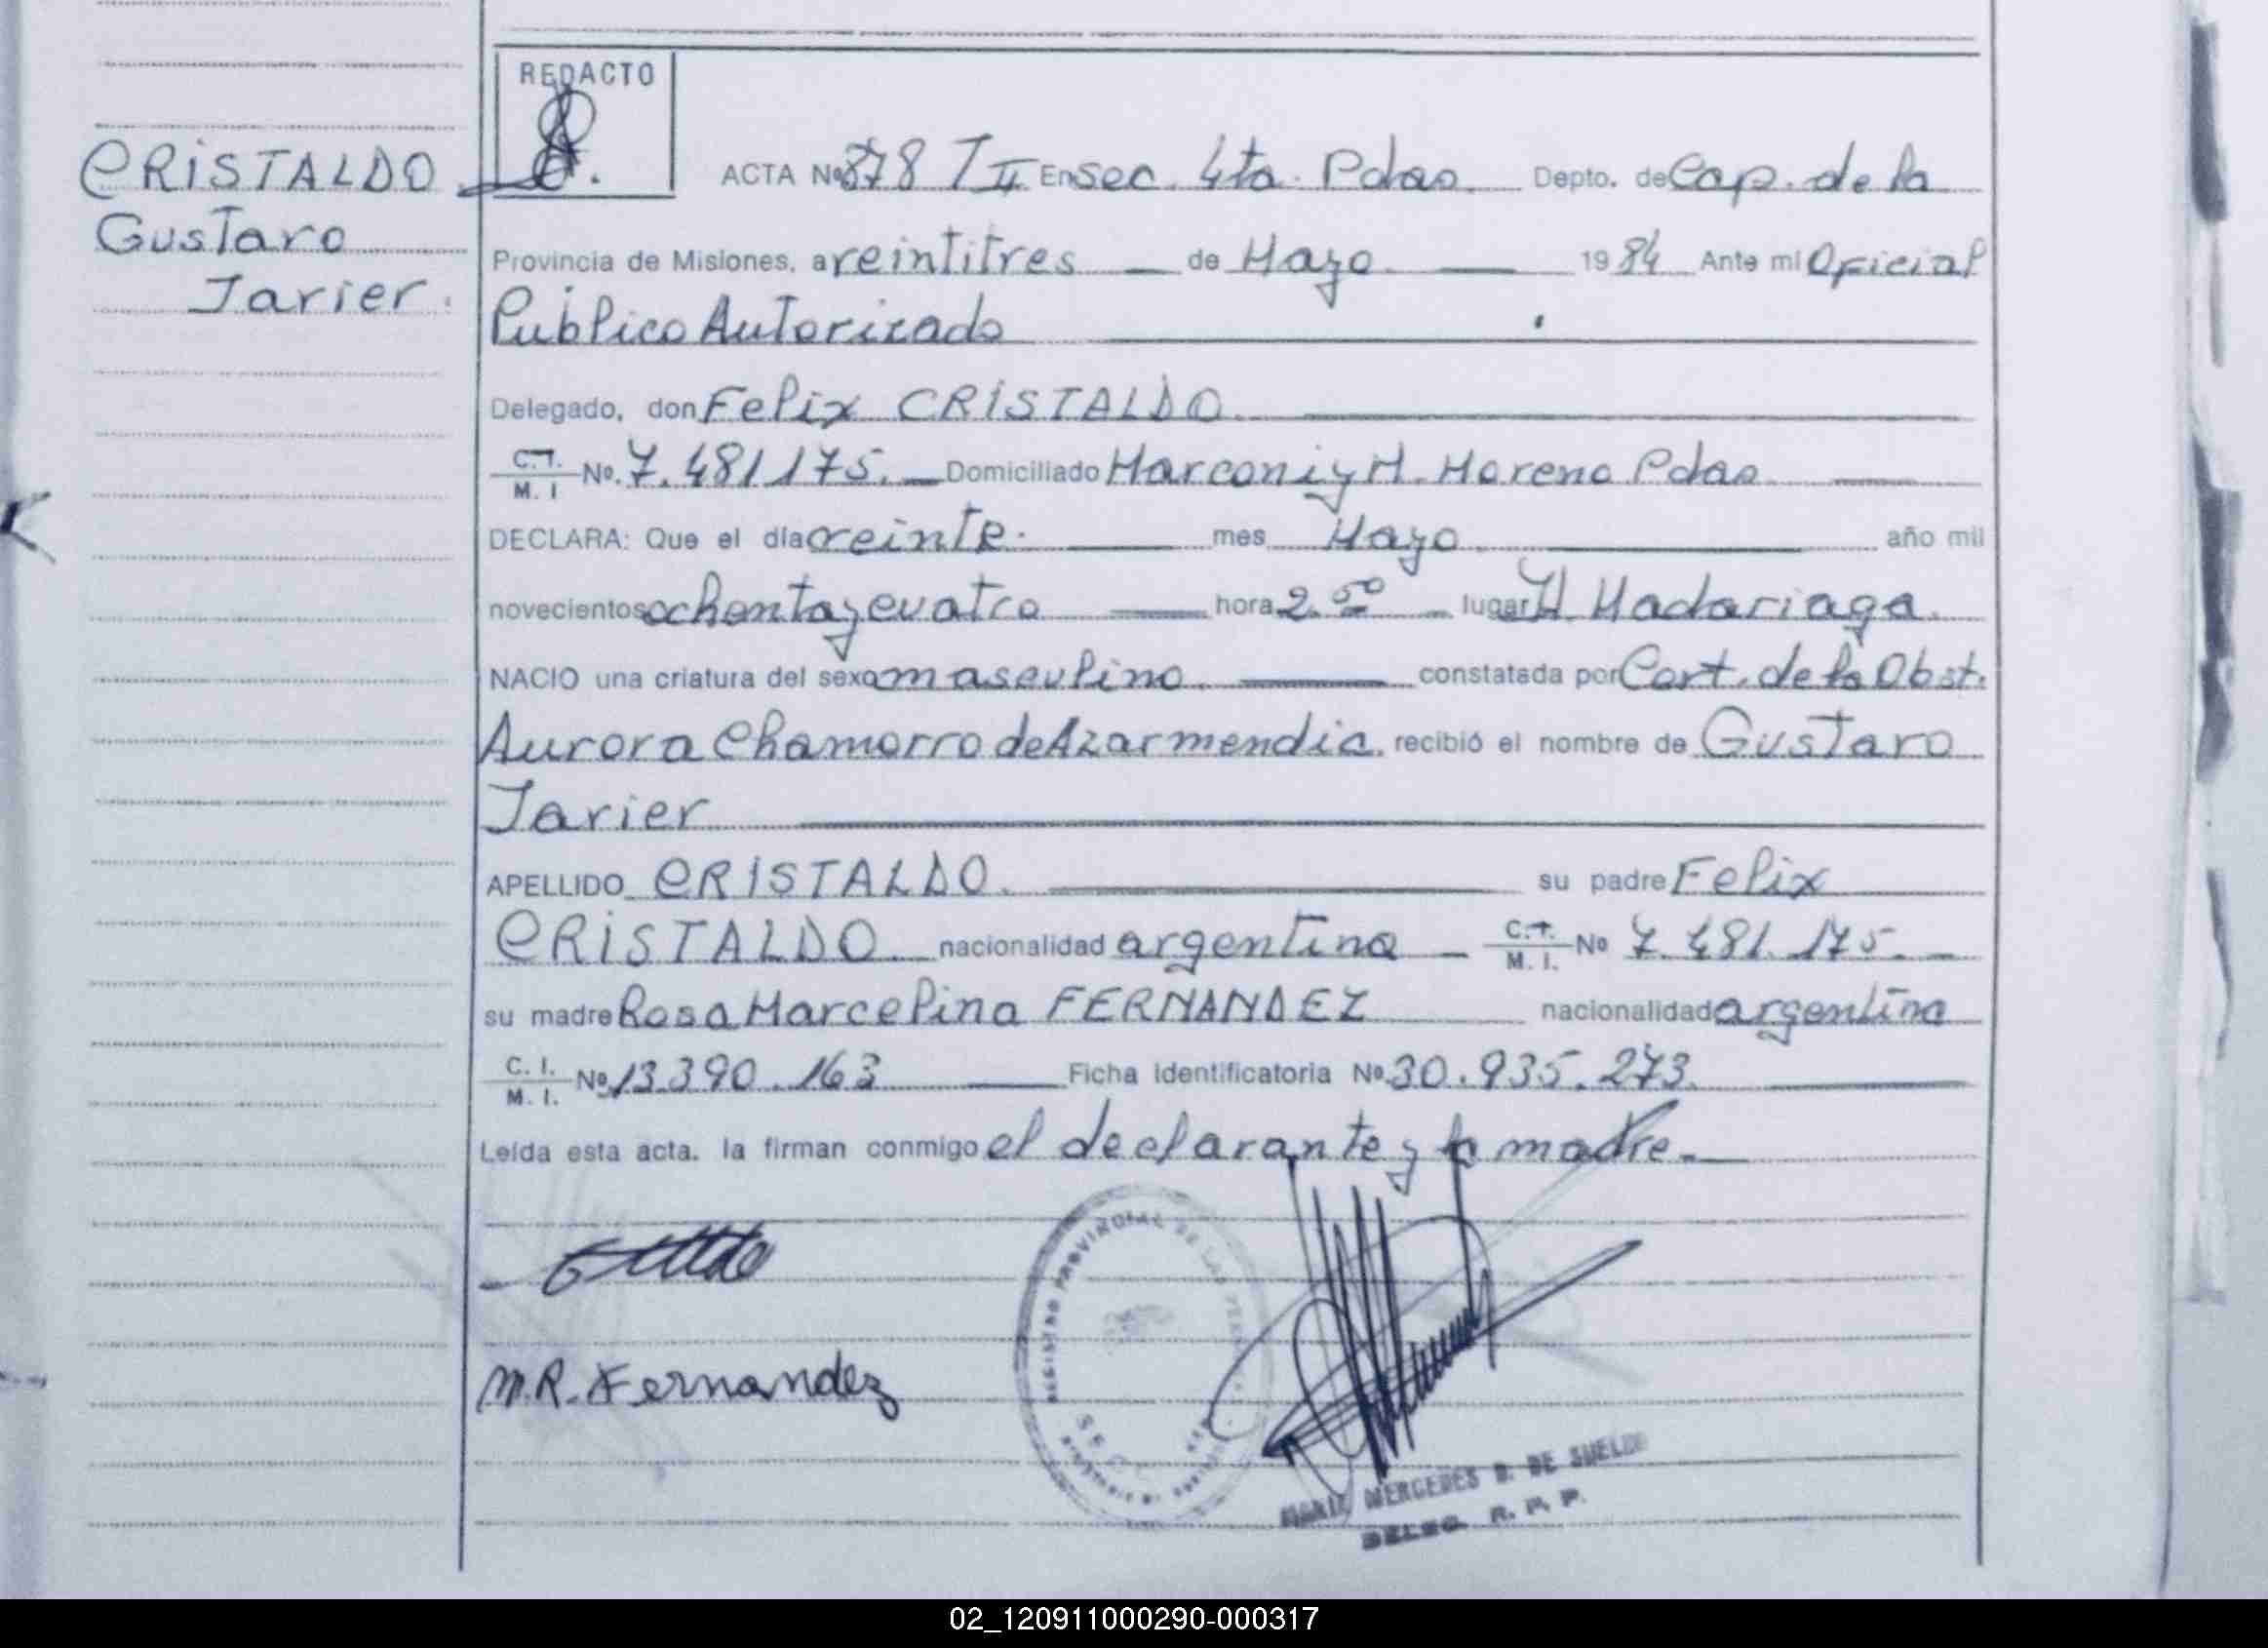 REDACTO
CRISTALDO
Gustavo
Javier.
ACTA Nº 878 T II En sec. 4ta. Pdas. Depto. de Cap. de la
Provincia de Misiones, a veintitres de Mayo 1984 Ante mi Oficial
Público Autorizado
Delegado, don Felix CRISTALDO.
C.I. M. I Nº. 7.481175. Domiciliado Marconi y M. Moreno Pdas.
DECLARA: Que el día veinte. mes Mayo. año mil
novecientos ochenta y cuatro hora 2.50 lugar H. Madariaga.
NACIO una criatura del sexo masculino. constatada por Cert. de la Obst.
Aurora Chamorro de Azarmendia. recibió el nombre de Gustavo
Javier
APELLIDO CRISTALDO. su padre Felix
CRISTALDO. nacionalidad argentina C.I. M. I. Nº 7.481.175.
su madre Rosa Marcelina FERNANDEZ nacionalidad argentina
C. I. M. I. Nº 13390.163 Ficha Identificatoria Nº 30.935.273.
Leída esta acta. la firman conmigo el declarante y la madre.
M.R. Fernandez
REGISTRO PROVINCIAL DE LAS PERSONAS
MARIA MERCEDES D. DE SUELDO
DELEG. R. P. P.
02_120911000290-000317